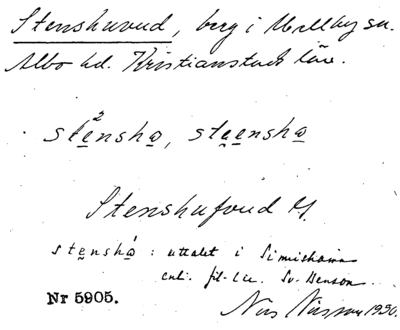 Stenshuvud, berg i Mellby sn.
Albo hd. Kristianstads län.
stenshɷ, steenshɷ
Stenshufvud G.
stenshɷ́ : uttalet i Simrishamn
enl. fil. lic. Sv. Benson.
Nr 5905.
Nils Nilsson 1930.